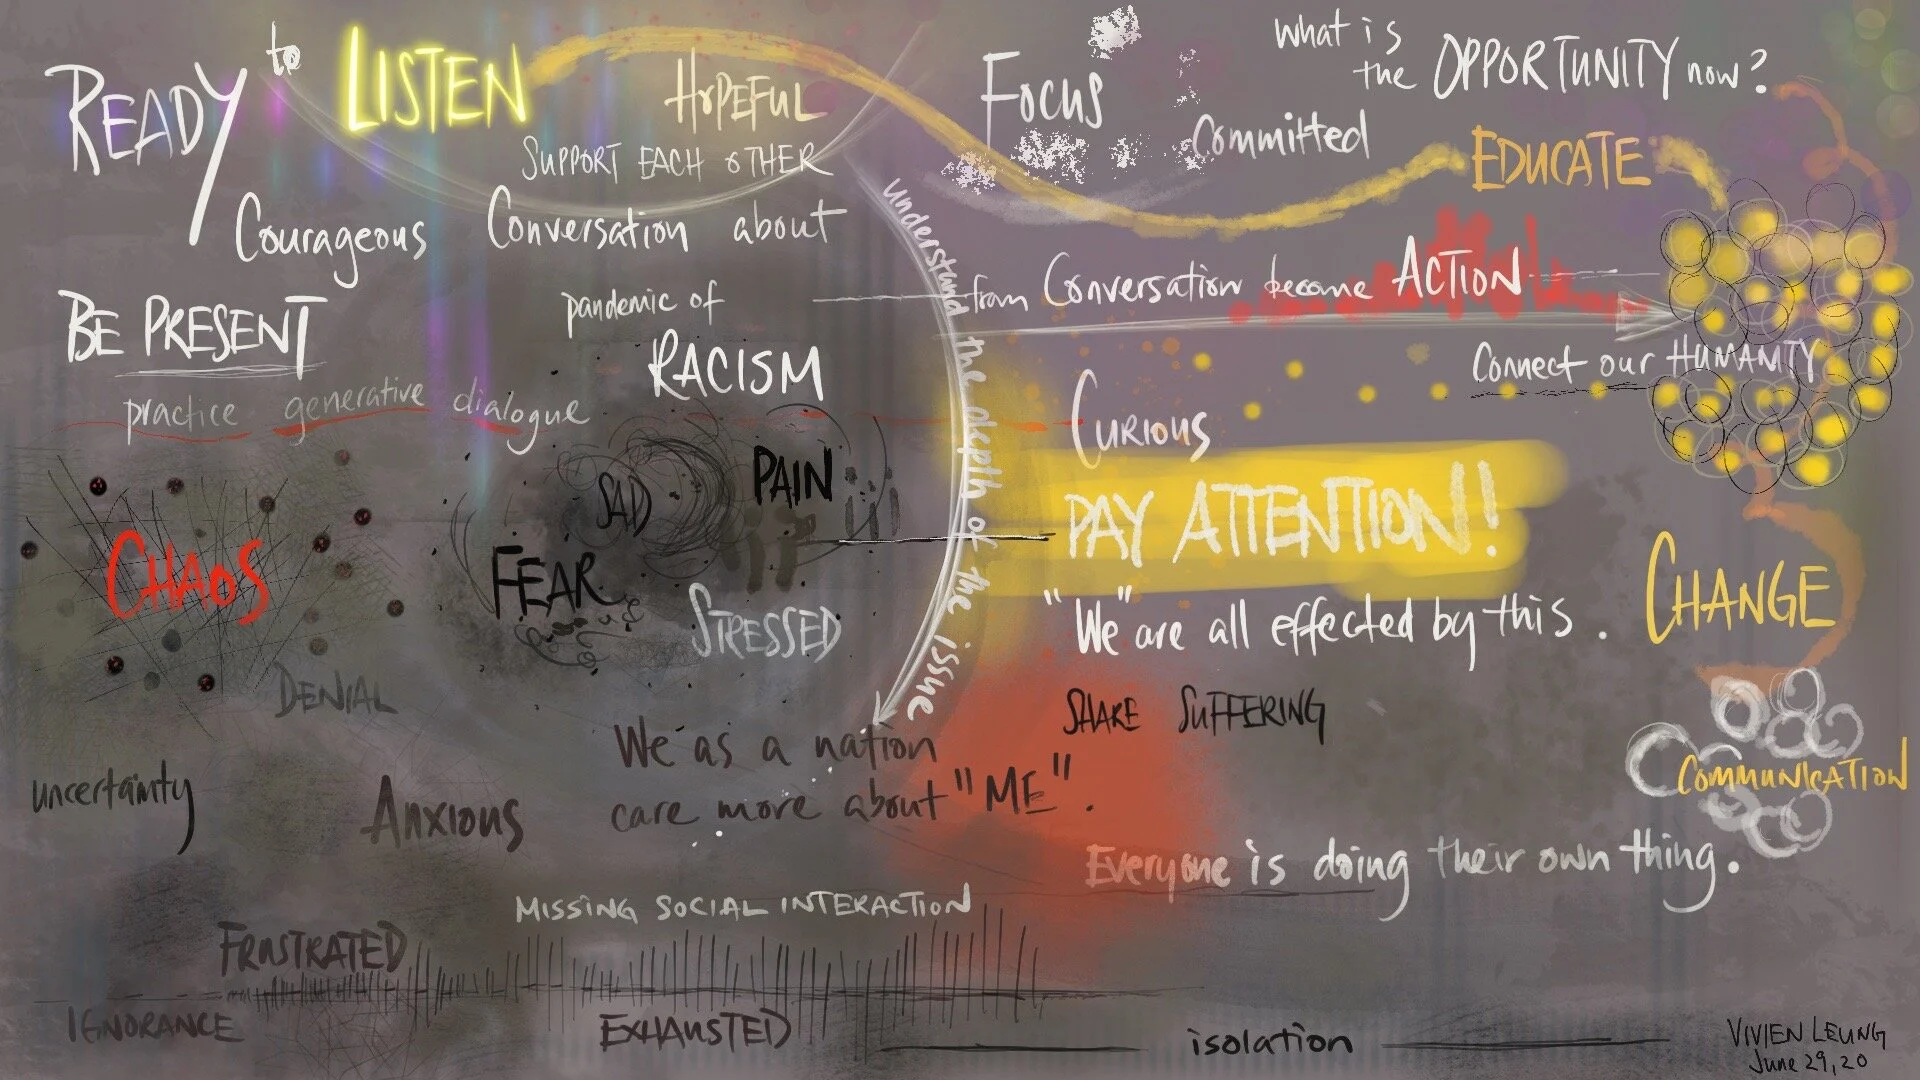 READY to LISTEN
HOPEFUL
SUPPORT EACH OTHER
Courageous Conversation about
pandemic of
RACISM
BE PRESENT
practice generative dialogue
CHAOS
SAD
PAIN
FEAR
STRESSED
DENIAL
uncertainty
Anxious
We as a nation
care more about "ME".
MISSING SOCIAL INTERACTION
FRUSTRATED
IGNORANCE
EXHAUSTED
isolation
understand the depth of the issue
FOCUS
Committed
What is
the OPPORTUNITY now?
EDUCATE
from Conversation become ACTION
Connect our HUMANITY
CURIOUS
PAY ATTENTION!
"We" are all effected by this.
SHARE SUFFERING
CHANGE
COMMUNICATION
Everyone is doing their own thing.
VIVIEN LEUNG
June 29, 20